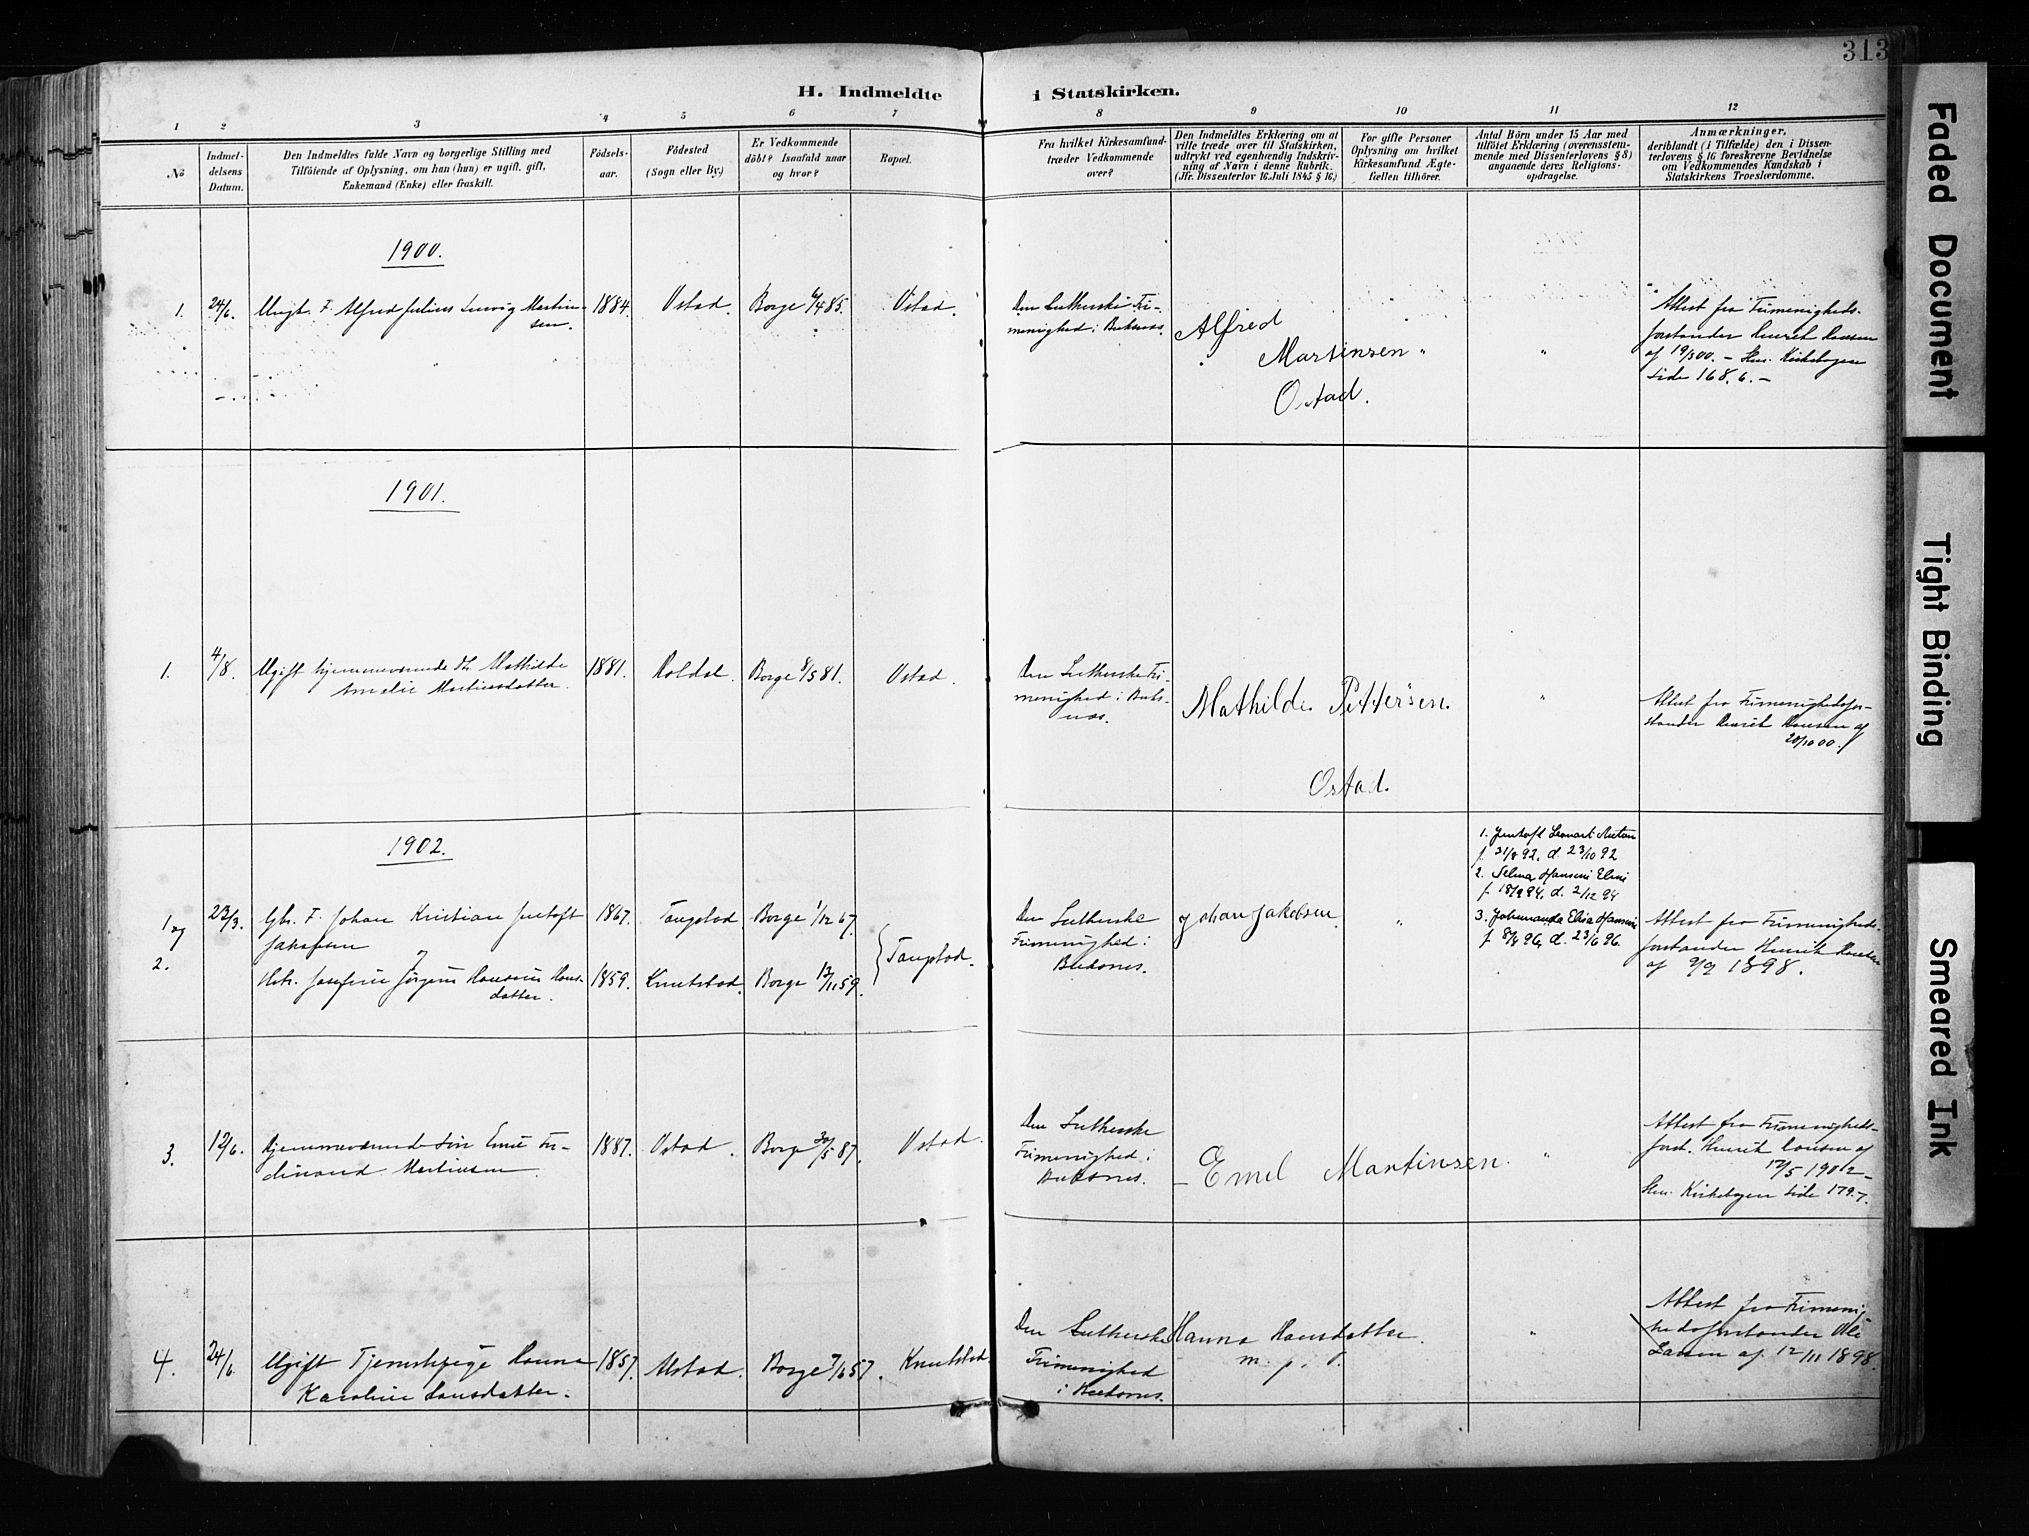 313
H. Indmeldte i Statskirken.
1 2 3 4 5 6 7 8 9 10 11 12
No
Indmel-
delsens
Datum.
Den Indmeldtes fulde Navn og borgerlige Stilling med
Tilföiende af Oplysning, om han (hun) er ugift, gift,
Enkemand (Enke) eller fraskilt.
Födsels-
aar.
Födested
(Sogn eller By.)
Er Vedkommende
döbt? Isaafald naar
og hvor?
Bopæl.
Fra hvilket Kirkesamfund
træder Vedkommende
over?
Den Indmeldtes Erklæring om at
ville træde over til Statskirken,
udtrykt ved egenhændig Indskriv-
ning af Navn i denne Rubrik.
(Jfr. Dissenterlov 16. Juli 1845 § 16.)
For gifte Personer
Oplysning om hvilket
Kirkesamfund Ægte-
fællen tilhörer.
Antal Börn under 15 Aar med
tilföiet Erklæring (overensstem-
mende med Dissenterlovens § 8)
angaaende deres Religions-
opdragelse.
Anmærkninger,
deriblandt (i Tilfælde) den i Dissen-
terlovens § 16 foreskrevne Bevidnelse
om Vedkommendes Kundskab i
Statskirkens Troeslærdomme.
1900.
1.
24/6.
Alfred Julius Martin-
sen.
1884.
Ostad.
Borge 6/4 85.
Ostad.
Den Lutherske Fri-
menighed i Buksnæs.
Alfred
Martinsen
Ostad.
Attest fra Frimenigheds-
forstander Henrik Hansen
af 19/5 00. – Kirkebogen
side 168. 6. –
1901.
1.
4/8.
Ugift hjemmeværende Mathilde
Amalie Martinsdatter.
1881.
Borge 8/5 81.
Ostad.
Den Lutherske Fri-
menighed i Buks-
næs.
Mathilde Pettersen.
Ostad.
Attest fra Frimenighedsfor-
stander Henrik Hansen af
20/10 00.
1902.
1 og
2.
23/3.
Gbr. F. Johan Kristian Jentoft
Jakobsen
Hstr. Josefine Jørgine Hansine Hans-
datter.
1867.
1859.
Tangstad.
Knutstad.
Borge 1/12 67.
Borge 13/11 59.
Tangstad.
Den Lutherske
Frimenighed i
Buksnes.
Johan Jakobsen
1. Jentoft Leonart Anton
f. 31/8 92, d. 23/10 92
2. Selma Hansine Eline
f. 18/9 94, d. 2/12 94
3. Johannanda Elisa Hansine
f. 8/4 96, d. 23/6 96.
Attest fra Frimenigheds-
forstander Henrik Hansen
af 9/9 1898.
3.
12/6.
Hjemmeværende Søn Emil Fer-
dinand Martinsen
1887.
Ostad.
Borge 30/5 87.
Ostad.
Den Lutherske
Frimenighed i
Buksnes.
Emel Martinsen.
Attest fra Frimenigheds-
forst. Henrik Hansen af
12/5 1902 –
Kirkebogen side 179. 7.
4.
24/6.
Ugift Tjenestepige Hanna
Karoline Hansdatter.
1857.
Alstad.
Borge 7/6 57.
Knutstad.
Den Lutherske
Frimenighed
i Buksnes.
Hanna Hansdatter.
m. p. P.
Attest fra Frimenig-
hedsforstander Ole
Larsen af 12/11 1898.
Faded Document
Tight Binding
Smeared Ink